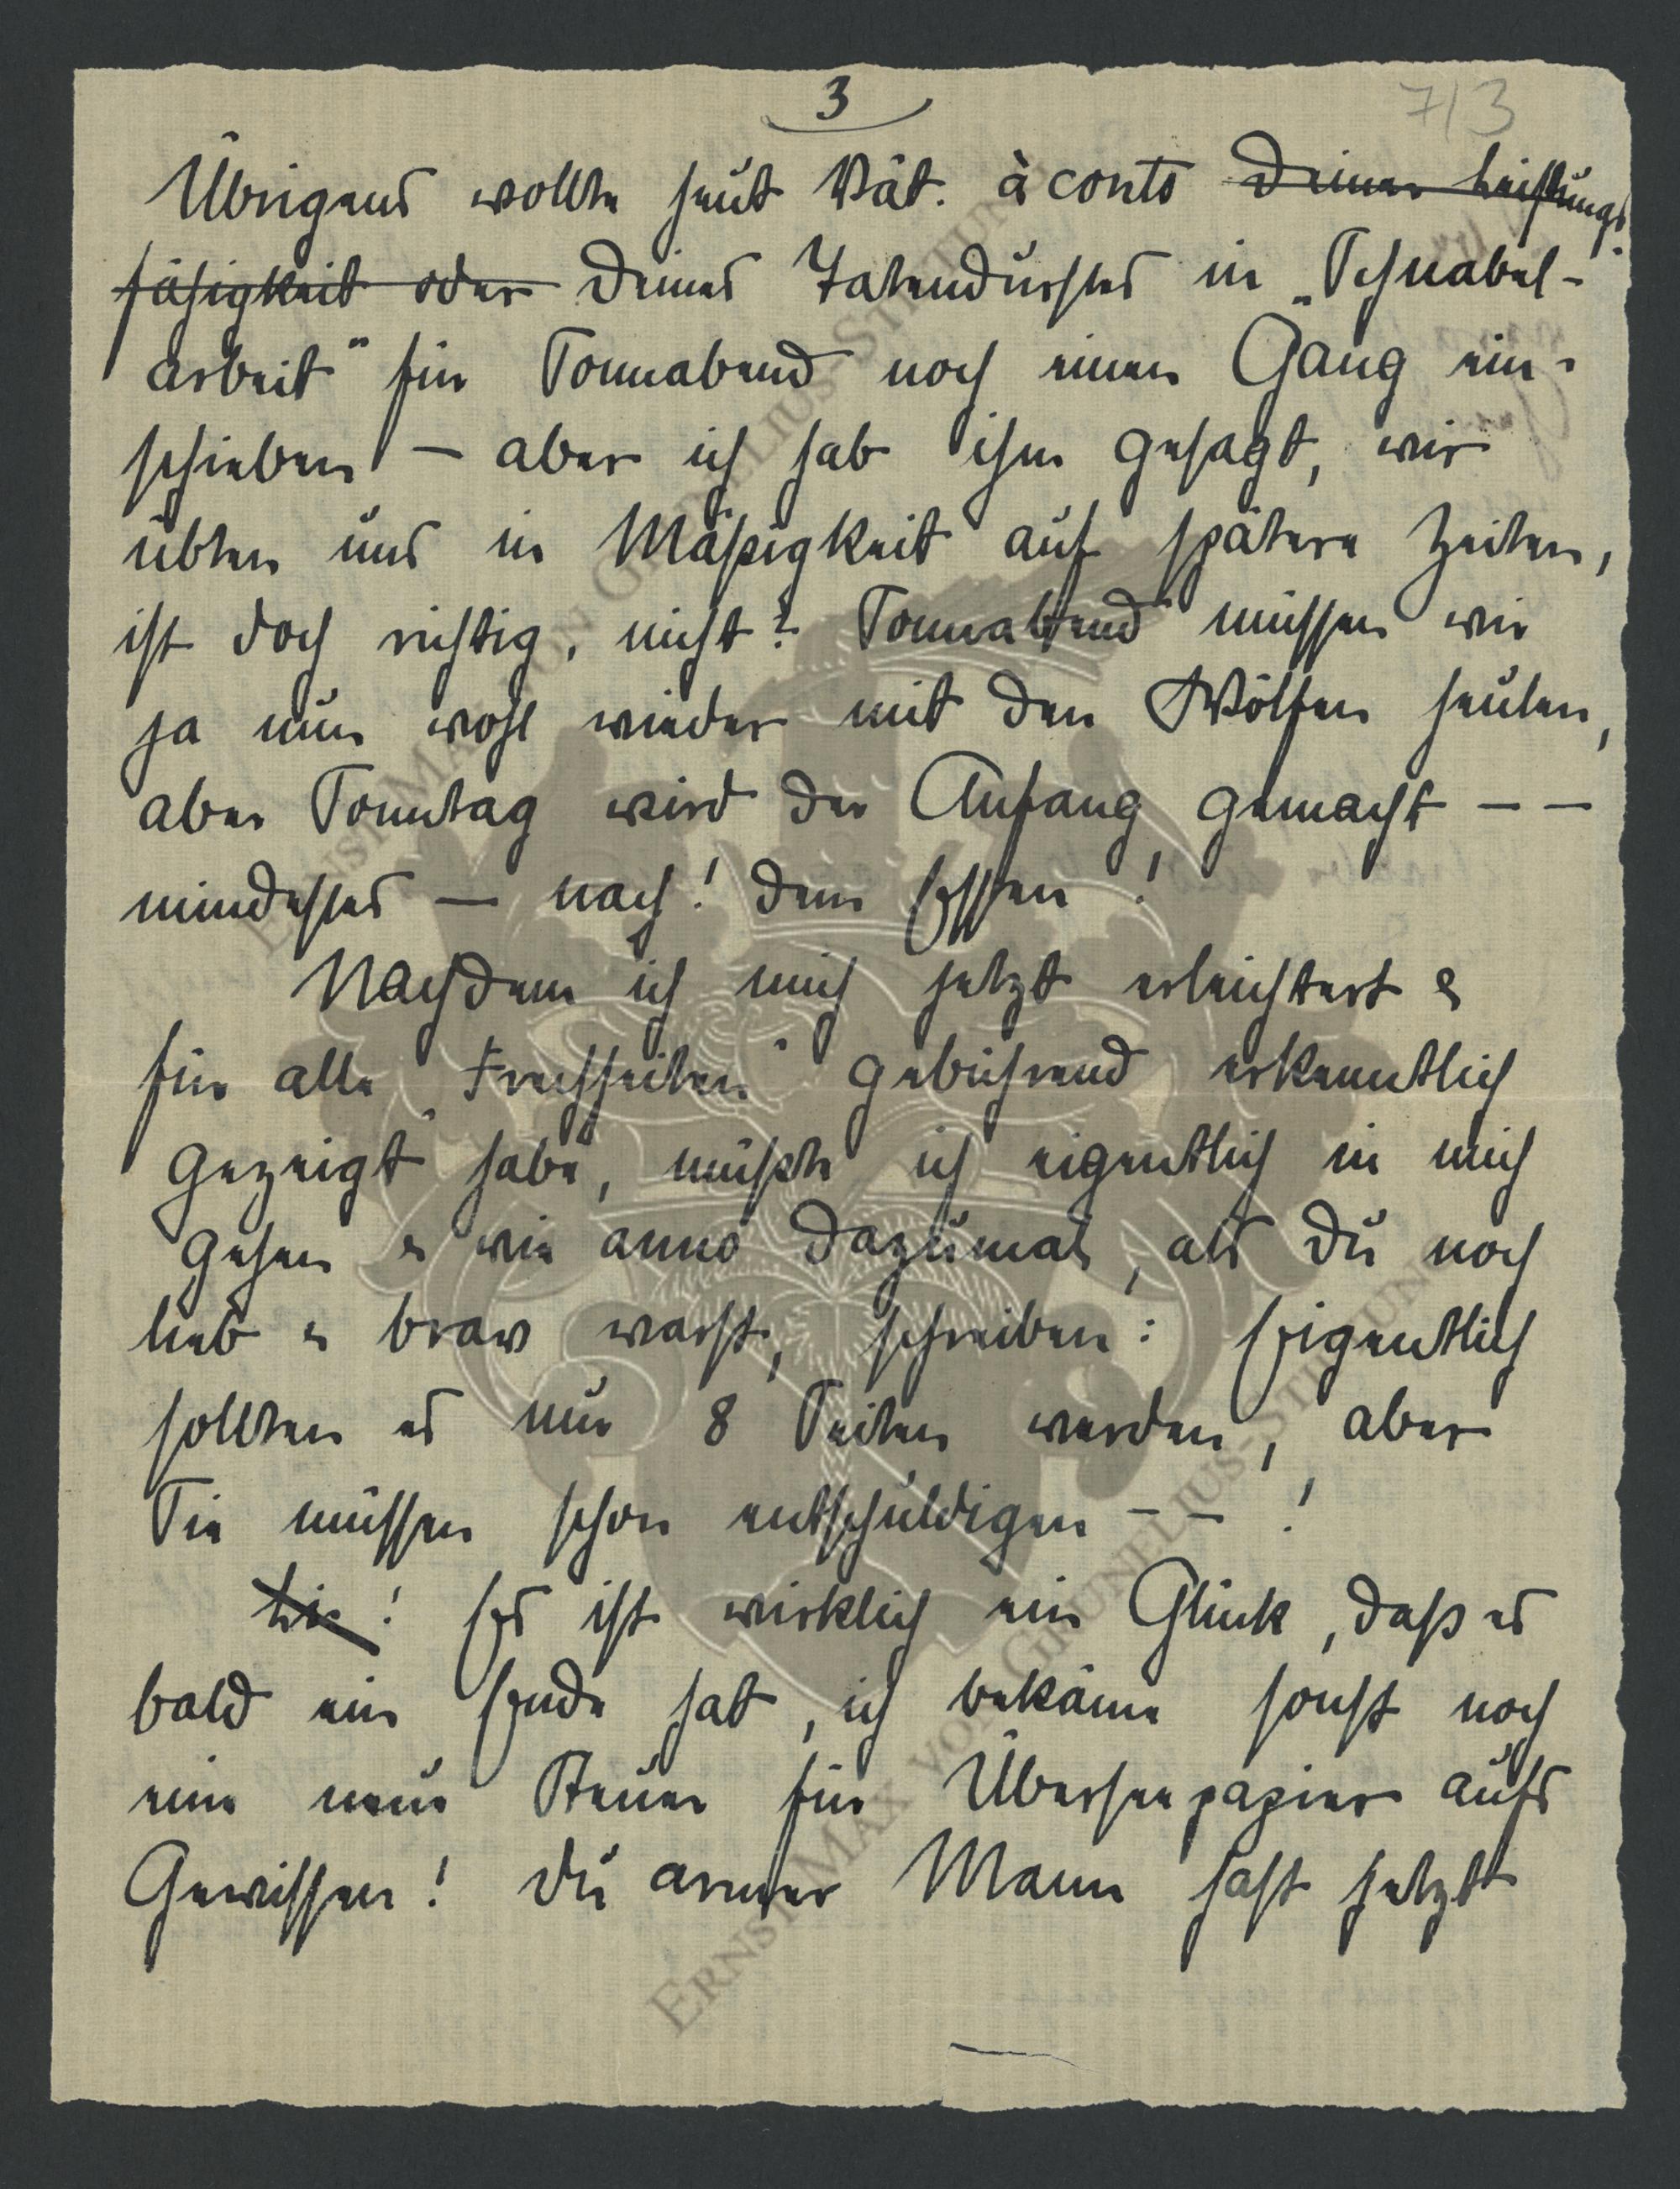 3
7/3
Übrigens wollte heut Vät. à conto Deiner Leistungs-
fähigkeit oder Deines Tatendurstes in „Schnabel-
arbeit" für Sonnabend noch einen Gang ein-
schieben – aber ich hab ihm gesagt, wir
übten uns in Mäßigkeit auf spätere Zeiten,
ist doch richtig, nicht? Sonnabend müssen wir
ja nun wohl wieder mit den Wölfen heulen,
aber Sonntag wird der Anfang gemacht – –
mindestens – nach! dem Essen!
Nachdem ich mich jetzt erleichtert &
für alle „Frechheiten" gebührend erkenntlich
gezeigt habe, müßte ich eigentlich in mich
gehen & wie anno dazumal, als Du noch
lieb & brav warst, schreiben: Eigentlich
sollten es nur 8 Seiten werden, aber
Sie müssen schon entschuldigen – – !
! Es ist wirklich ein Glück, daß es
bald ein Ende hat, ich bekäme sonst noch
eine neue Steuer für Überseepapier aufs
Gewissen! Du armer Mann hast jetzt
Ernst Max von Grunelius-Stiftung
Ernst Max von Grunelius-Stiftung